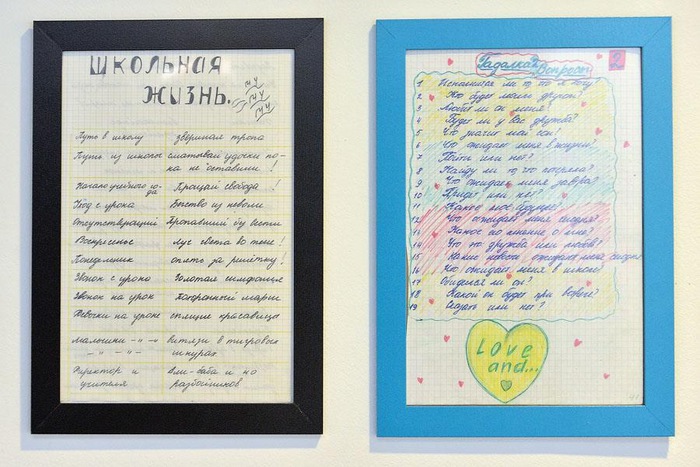 ШКОЛЬНАЯ
ЖИЗНЬ.
му
му
му
Путь в школу звериная тропа
Путь из школы сматывай удочки по-
ка не оставили !
Начало учебного го- Прощай свобода !
да
Уход с урока Бегство из неволи
Отсутствующий Пропавший без вести
Воскресенье Луч света во тьме !
Понедельник опять за решётку !
Звонок с урока Золотая симфония
Звонок на урок Похоронный марш
Девочки на уроке спящие красавицы
мальчики -"- -"- витязи в тигровых
-"- -"- -"- шкурах
Директор и али-баба и
учителя разбойников
Гадалка
Вопросы
2
1 Исполнится ли то что я хочу?
2 Кто будет моим другом?
3 Любит ли он меня?
4 Будет ли у вас дружба?
5 Что значит мой сон!
6 Что ожидает меня в жизни?
7 Пойти или нет?
8 Найду ли то что потеряла?
9 Что ожидает меня завтра?
10 Придёт или нет?
11 Какое моё
12 Что ожидает меня сегодня?
13 Какое его мнение о мне?
14 Что это дружба или любовь?
15 Какие новости ожидают меня сегодня
16 Что ожидает меня в школе?
17 Обиделся ли он?
18 Какой он будет при
19 Сказать или нет?
Love
and...